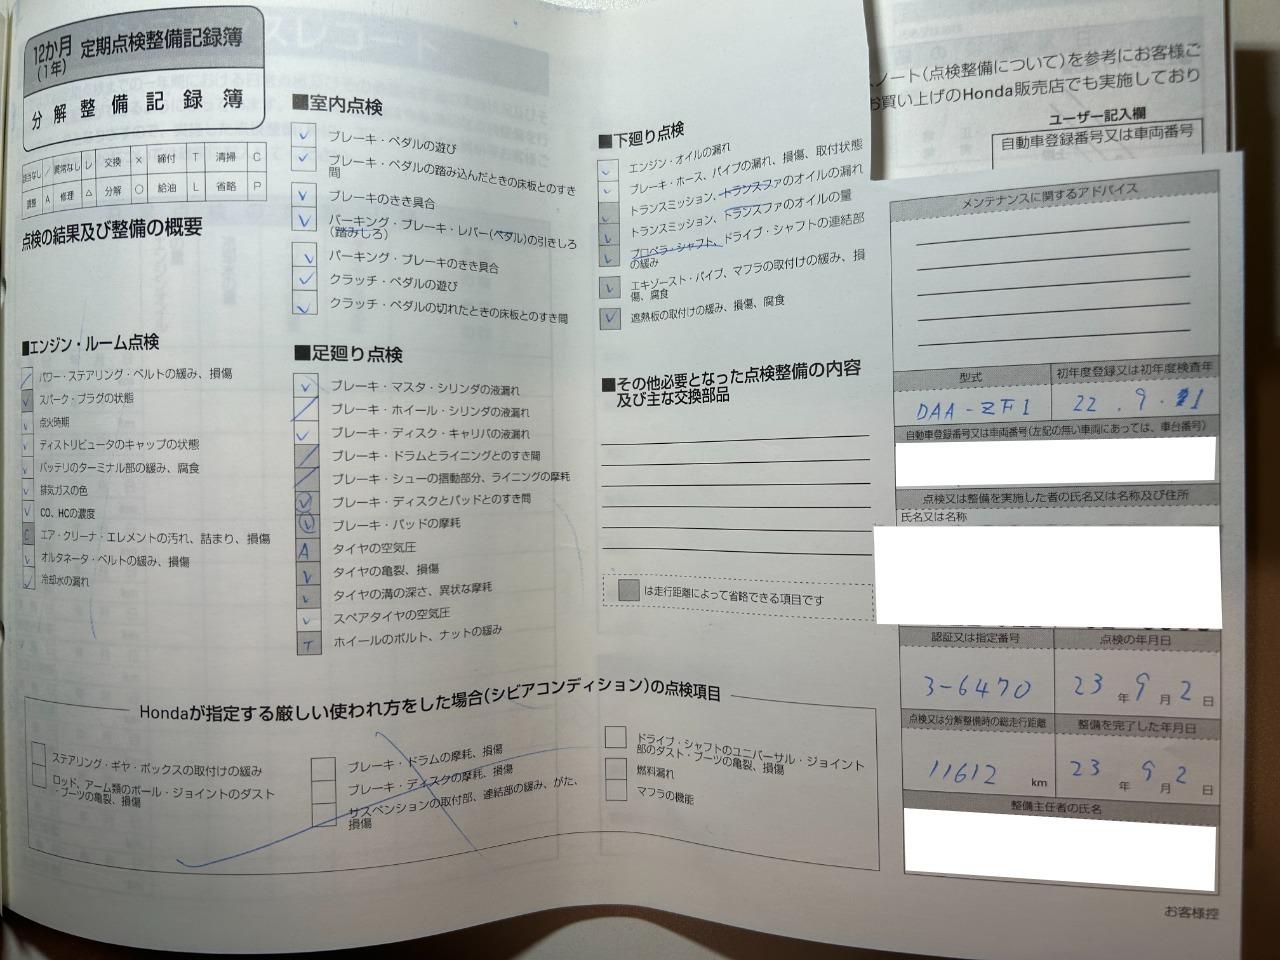 12か月
(1年)
定期点検整備記録簿
分解整備記録簿
該当なし / 異常なし レ 交換 × 締付 T 清掃 C
調整 A 修理 △ 分解 ○ 給油 L 省略 P
点検の結果及び整備の概要
■エンジン・ルーム点検
パワー・ステアリング・ベルトの緩み、損傷
スパーク・プラグの状態
点火時期
ディストリビュータのキャップの状態
バッテリのターミナル部の緩み、腐食
排気ガスの色
CO、HCの濃度
エア・クリーナ・エレメントの汚れ、詰まり、損傷
オルタネータ・ベルトの緩み、損傷
冷却水の漏れ
■室内点検
ブレーキ・ペダルの遊び
ブレーキ・ペダルの踏み込んだときの床板とのすき
間
ブレーキのきき具合
パーキング・ブレーキ・レバー(ペダル)の引きしろ
(踏みしろ)
パーキング・ブレーキのきき具合
クラッチ・ペダルの遊び
クラッチ・ペダルの切れたときの床板とのすき間
■足廻り点検
ブレーキ・マスタ・シリンダの液漏れ
ブレーキ・ホイール・シリンダの液漏れ
ブレーキ・ディスク・キャリパの液漏れ
ブレーキ・ドラムとライニングとのすき間
ブレーキ・シューの摺動部分、ライニングの摩耗
ブレーキ・ディスクとパッドとのすき間
ブレーキ・パッドの摩耗
A タイヤの空気圧
タイヤの亀裂、損傷
タイヤの溝の深さ、異状な摩耗
スペアタイヤの空気圧
T ホイールのボルト、ナットの緩み
■下廻り点検
エンジン・オイルの漏れ
ブレーキ・ホース、パイプの漏れ、損傷、取付状態
トランスミッション、トランスファのオイルの漏れ
トランスミッション、トランスファのオイルの量
プロペラ・シャフト、ドライブ・シャフトの連結部
の緩み
エキゾースト・パイプ、マフラの取付けの緩み、損
傷、腐食
遮熱板の取付けの緩み、損傷、腐食
■その他必要となった点検整備の内容
及び主な交換部品
は走行距離によって省略できる項目です
Hondaが指定する厳しい使われ方をした場合(シビアコンディション)の点検項目
ステアリング・ギヤ・ボックスの取付けの緩み
ロッド、アーム類のボール・ジョイントのダスト
・ブーツの亀裂、損傷
ブレーキ・ドラムの摩耗、損傷
ブレーキ・ディスクの摩耗、損傷
サスペンションの取付部、連結部の緩み、がた、
損傷
ドライブ・シャフトのユニバーサル・ジョイント
部のダスト・ブーツの亀裂、損傷
燃料漏れ
マフラの機能
ノート(点検整備について)を参考にお客様ご
お買い上げのHonda販売店でも実施しており
ユーザー記入欄
自動車登録番号又は車両番号
メンテナンスに関するアドバイス
型式 初年度登録又は初年度検査年
DAA-ZF1 22.9.1
自動車登録番号又は車両番号(左記の無い車両にあっては、車台番号)
点検又は整備を実施した者の氏名又は名称及び住所
氏名又は名称
認証又は指定番号 点検の年月日
3-6470 23年9月2日
点検又は分解整備時の総走行距離 整備を完了した年月日
11612 km 23年9月2日
整備主任者の氏名
お客様控